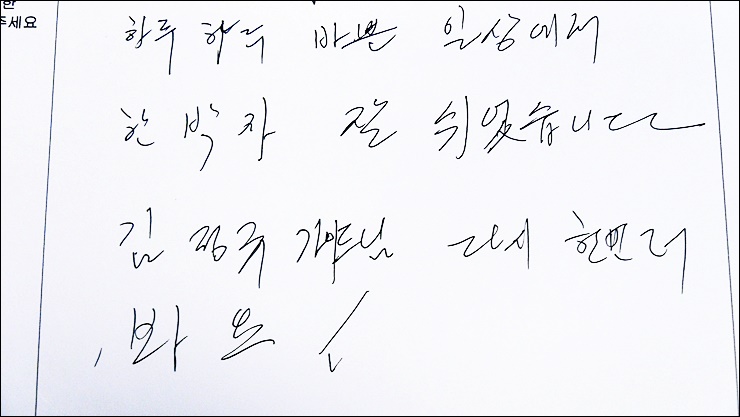 한
주세요
하루 하루 바쁜 일상에서
한 박자 잘 쉬었습니다
김 장국 기야드님 다시 한번 더
봐요!